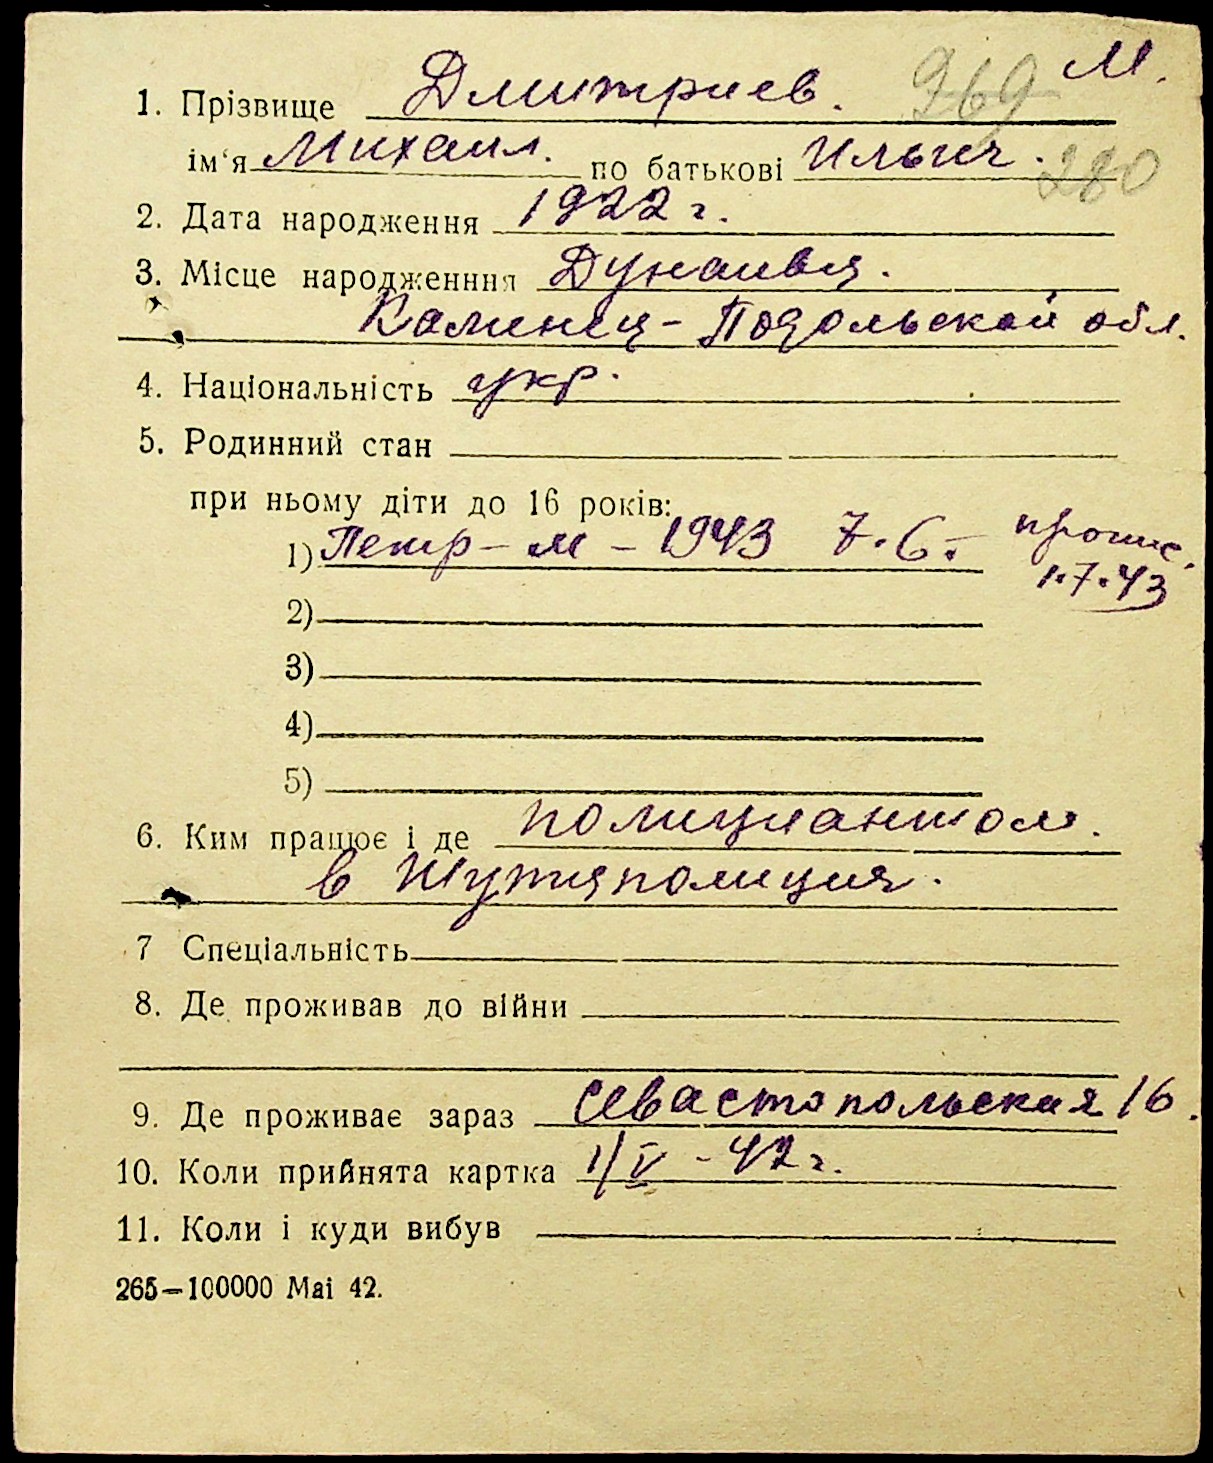 М.
1. Прізвище Дмитриев. 969
ім‘я Михаил. по батькові Ильич. 280
2. Дата народження 1922 г.
3. Місце народженння Дунаивця.
Каменец-Подольской обл.
4. Національність укр.
5. Родинний стан
при ньому діти до 16 років:
1) Петр – м – 1943 7.6. – пропис.
1.7.43
2)
3)
4)
5)
6. Ким працює і де полициантом.
в Шутцполиция.
7 Спеціальність
8. Де проживав до війни
9. Де проживає зараз Севастопольская 16.
10. Коли прийнята картка 1/V – 42 г.
11. Коли і куди вибув
265—100000 Маі 42.